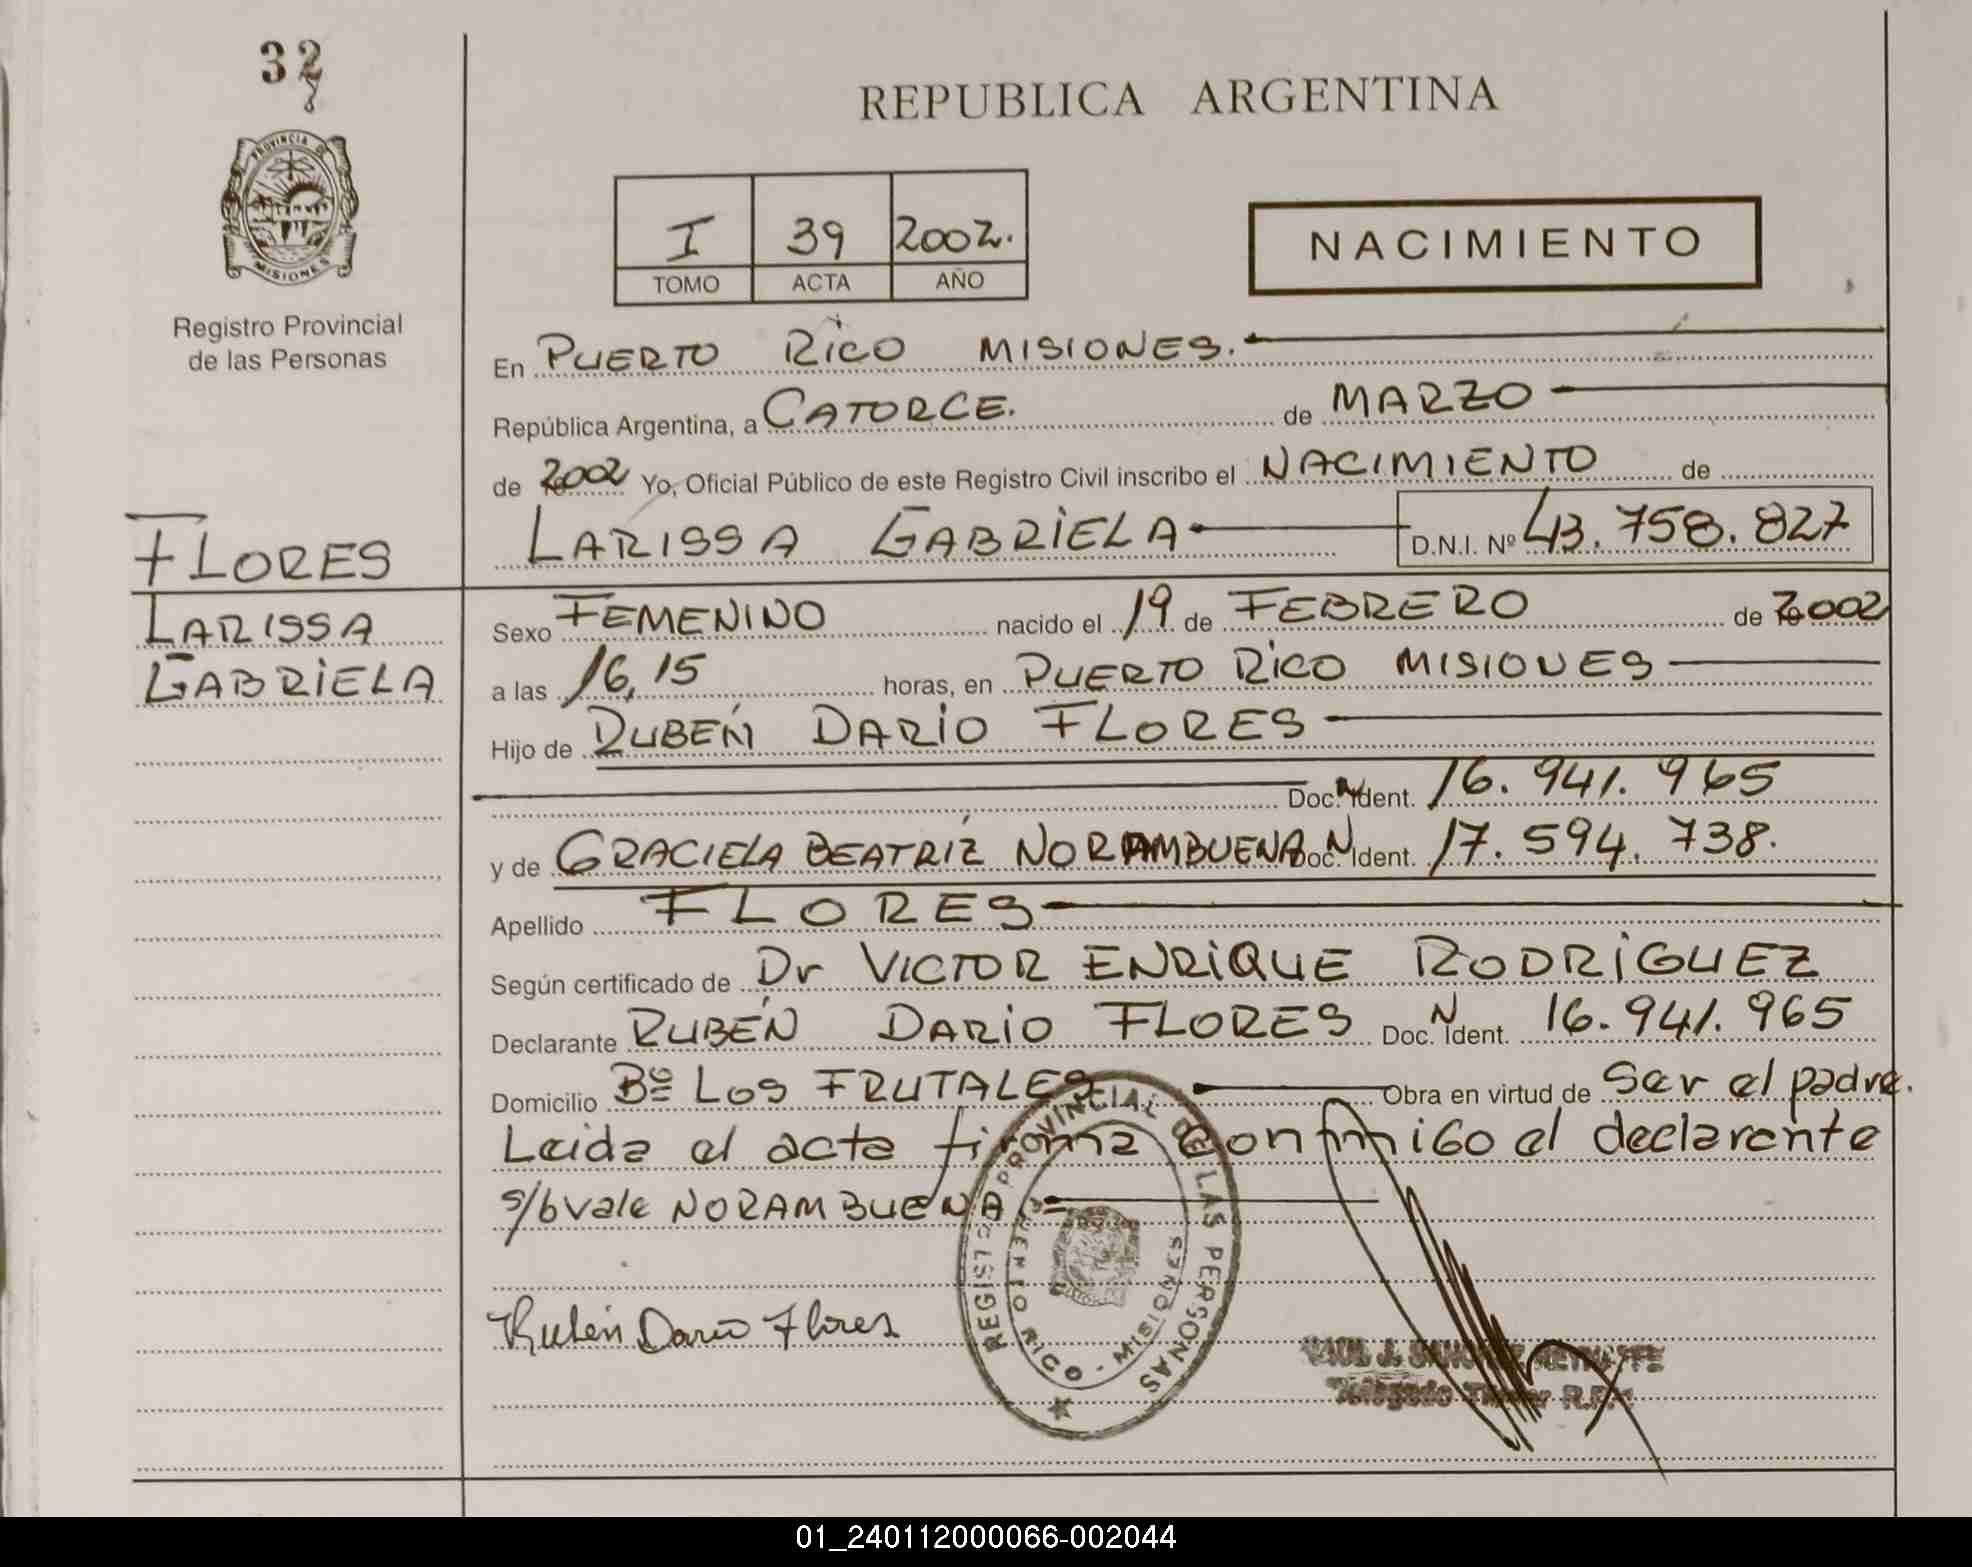 32
PROVINCIA DE
MISIONES
Registro Provincial
de las Personas
FLORES
LARISSA
GABRIELA
REPUBLICA ARGENTINA
I 39 2002.
TOMO ACTA AÑO
NACIMIENTO
En PUERTO RICO MISIONES.
República Argentina, a CATORCE. de MARZO
de 2002 Yo, Oficial Público de este Registro Civil inscribo el NACIMIENTO de
LARISSA GABRIELA D.N.I. Nº 43.758.827
Sexo FEMENINO nacido el 19 de FEBRERO de 2002
a las 16,15 horas, en PUERTO RICO MISIONES
Hijo de RUBÉN DARIO FLORES
Doc. N Ident. 16.941.965
y de GRACIELA BEATRIZ NORAMBUENA Doc. N Ident. 17.594.738.
Apellido FLORES
Según certificado de Dr VICTOR ENRIQUE RODRIGUEZ
Declarante RUBÉN DARIO FLORES Doc. N Ident. 16.941.965
Domicilio Bº LOS FRUTALES Obra en virtud de Ser el padre.
Leida el acta firma conmigo el declarante
s/b vale NORAMBUENA
REGISTRO PROVINCIAL DE LAS PERSONAS
RICO - MISIONES
Rubén Dario Flores
Titular R.P.P.
01_240112000066-002044